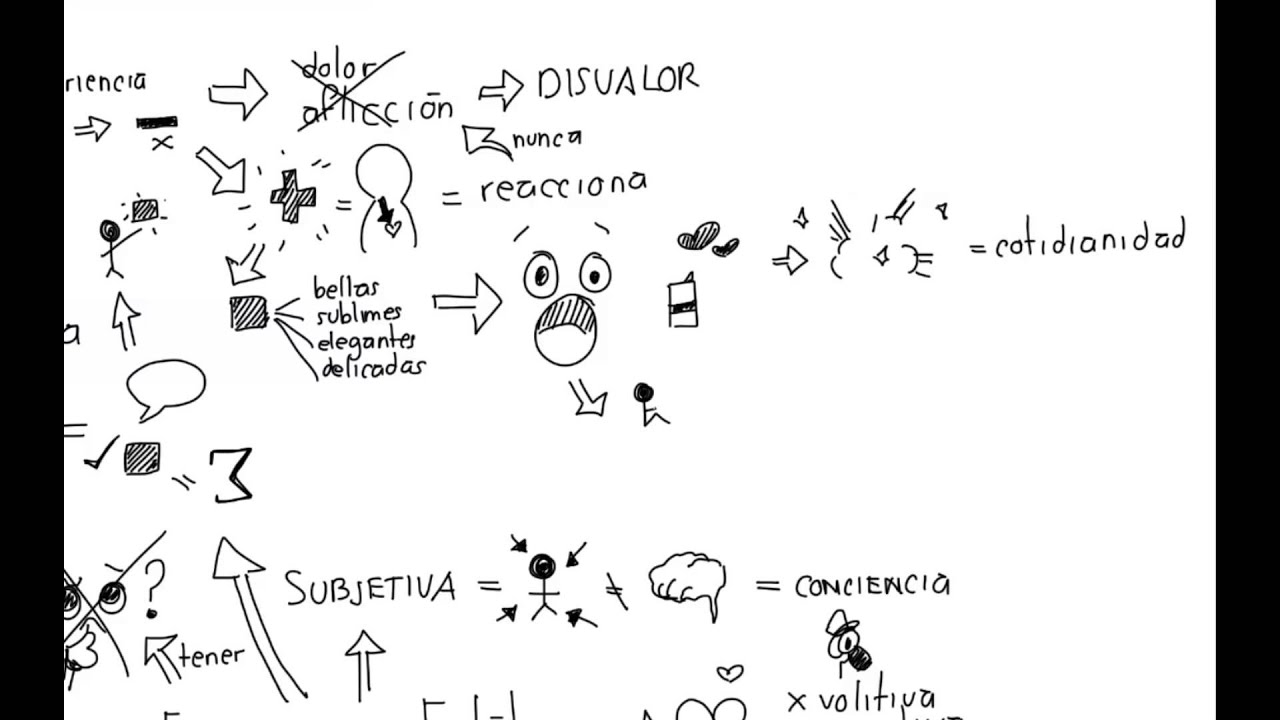 riencia
dolor
aflicción
DISVALOR
x
nunca
= reacciona
=
= cotidianidad
bellas
sublimes
elegantes
delicadas
a
=
=
?
SUBJETIVA = ≠ = CONCIENCIA
tener
x volitiva